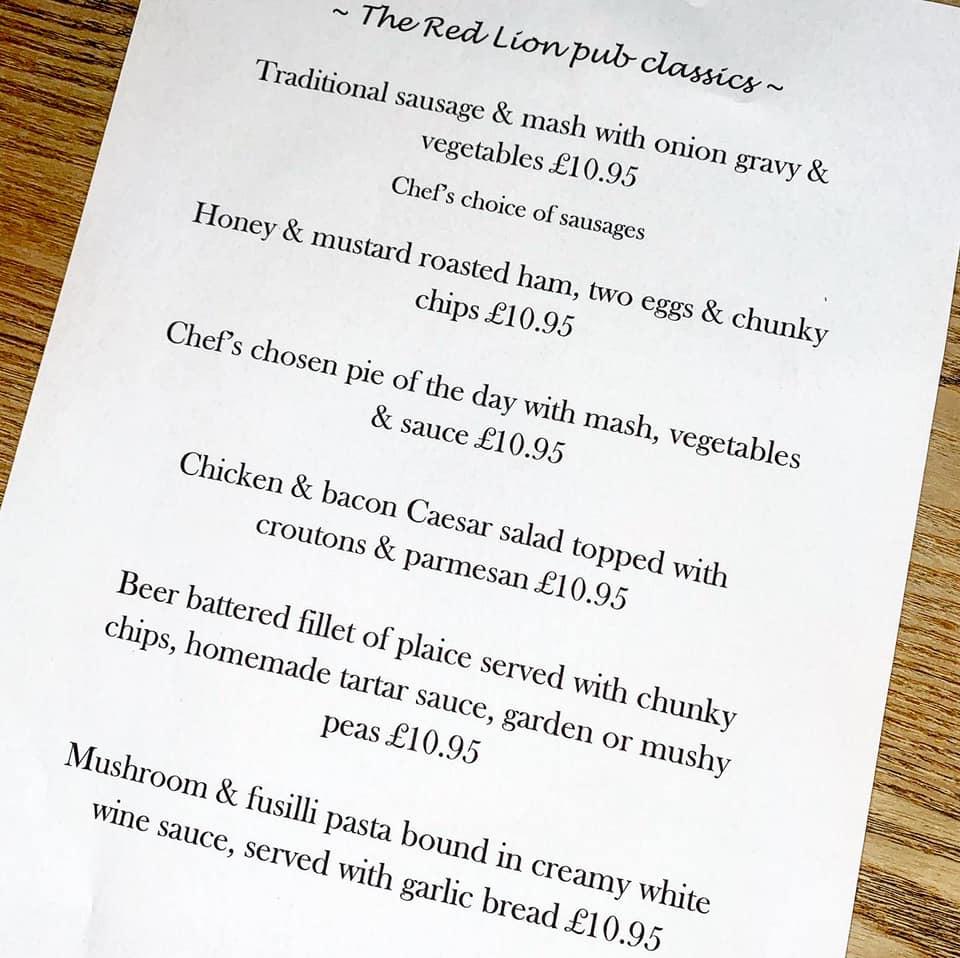 ~ The Red Lion pub classics ~
Traditional sausage & mash with onion gravy &
vegetables £10.95
Chef's choice of sausages
Honey & mustard roasted ham, two eggs & chunky
chips £10.95
Chef's chosen pie of the day with mash, vegetables
& sauce £10.95
Chicken & bacon Caesar salad topped with
croutons & parmesan £10.95
Beer battered fillet of plaice served with chunky
chips, homemade tartar sauce, garden or mushy
peas £10.95
Mushroom & fusilli pasta bound in creamy white
wine sauce, served with garlic bread £10.95